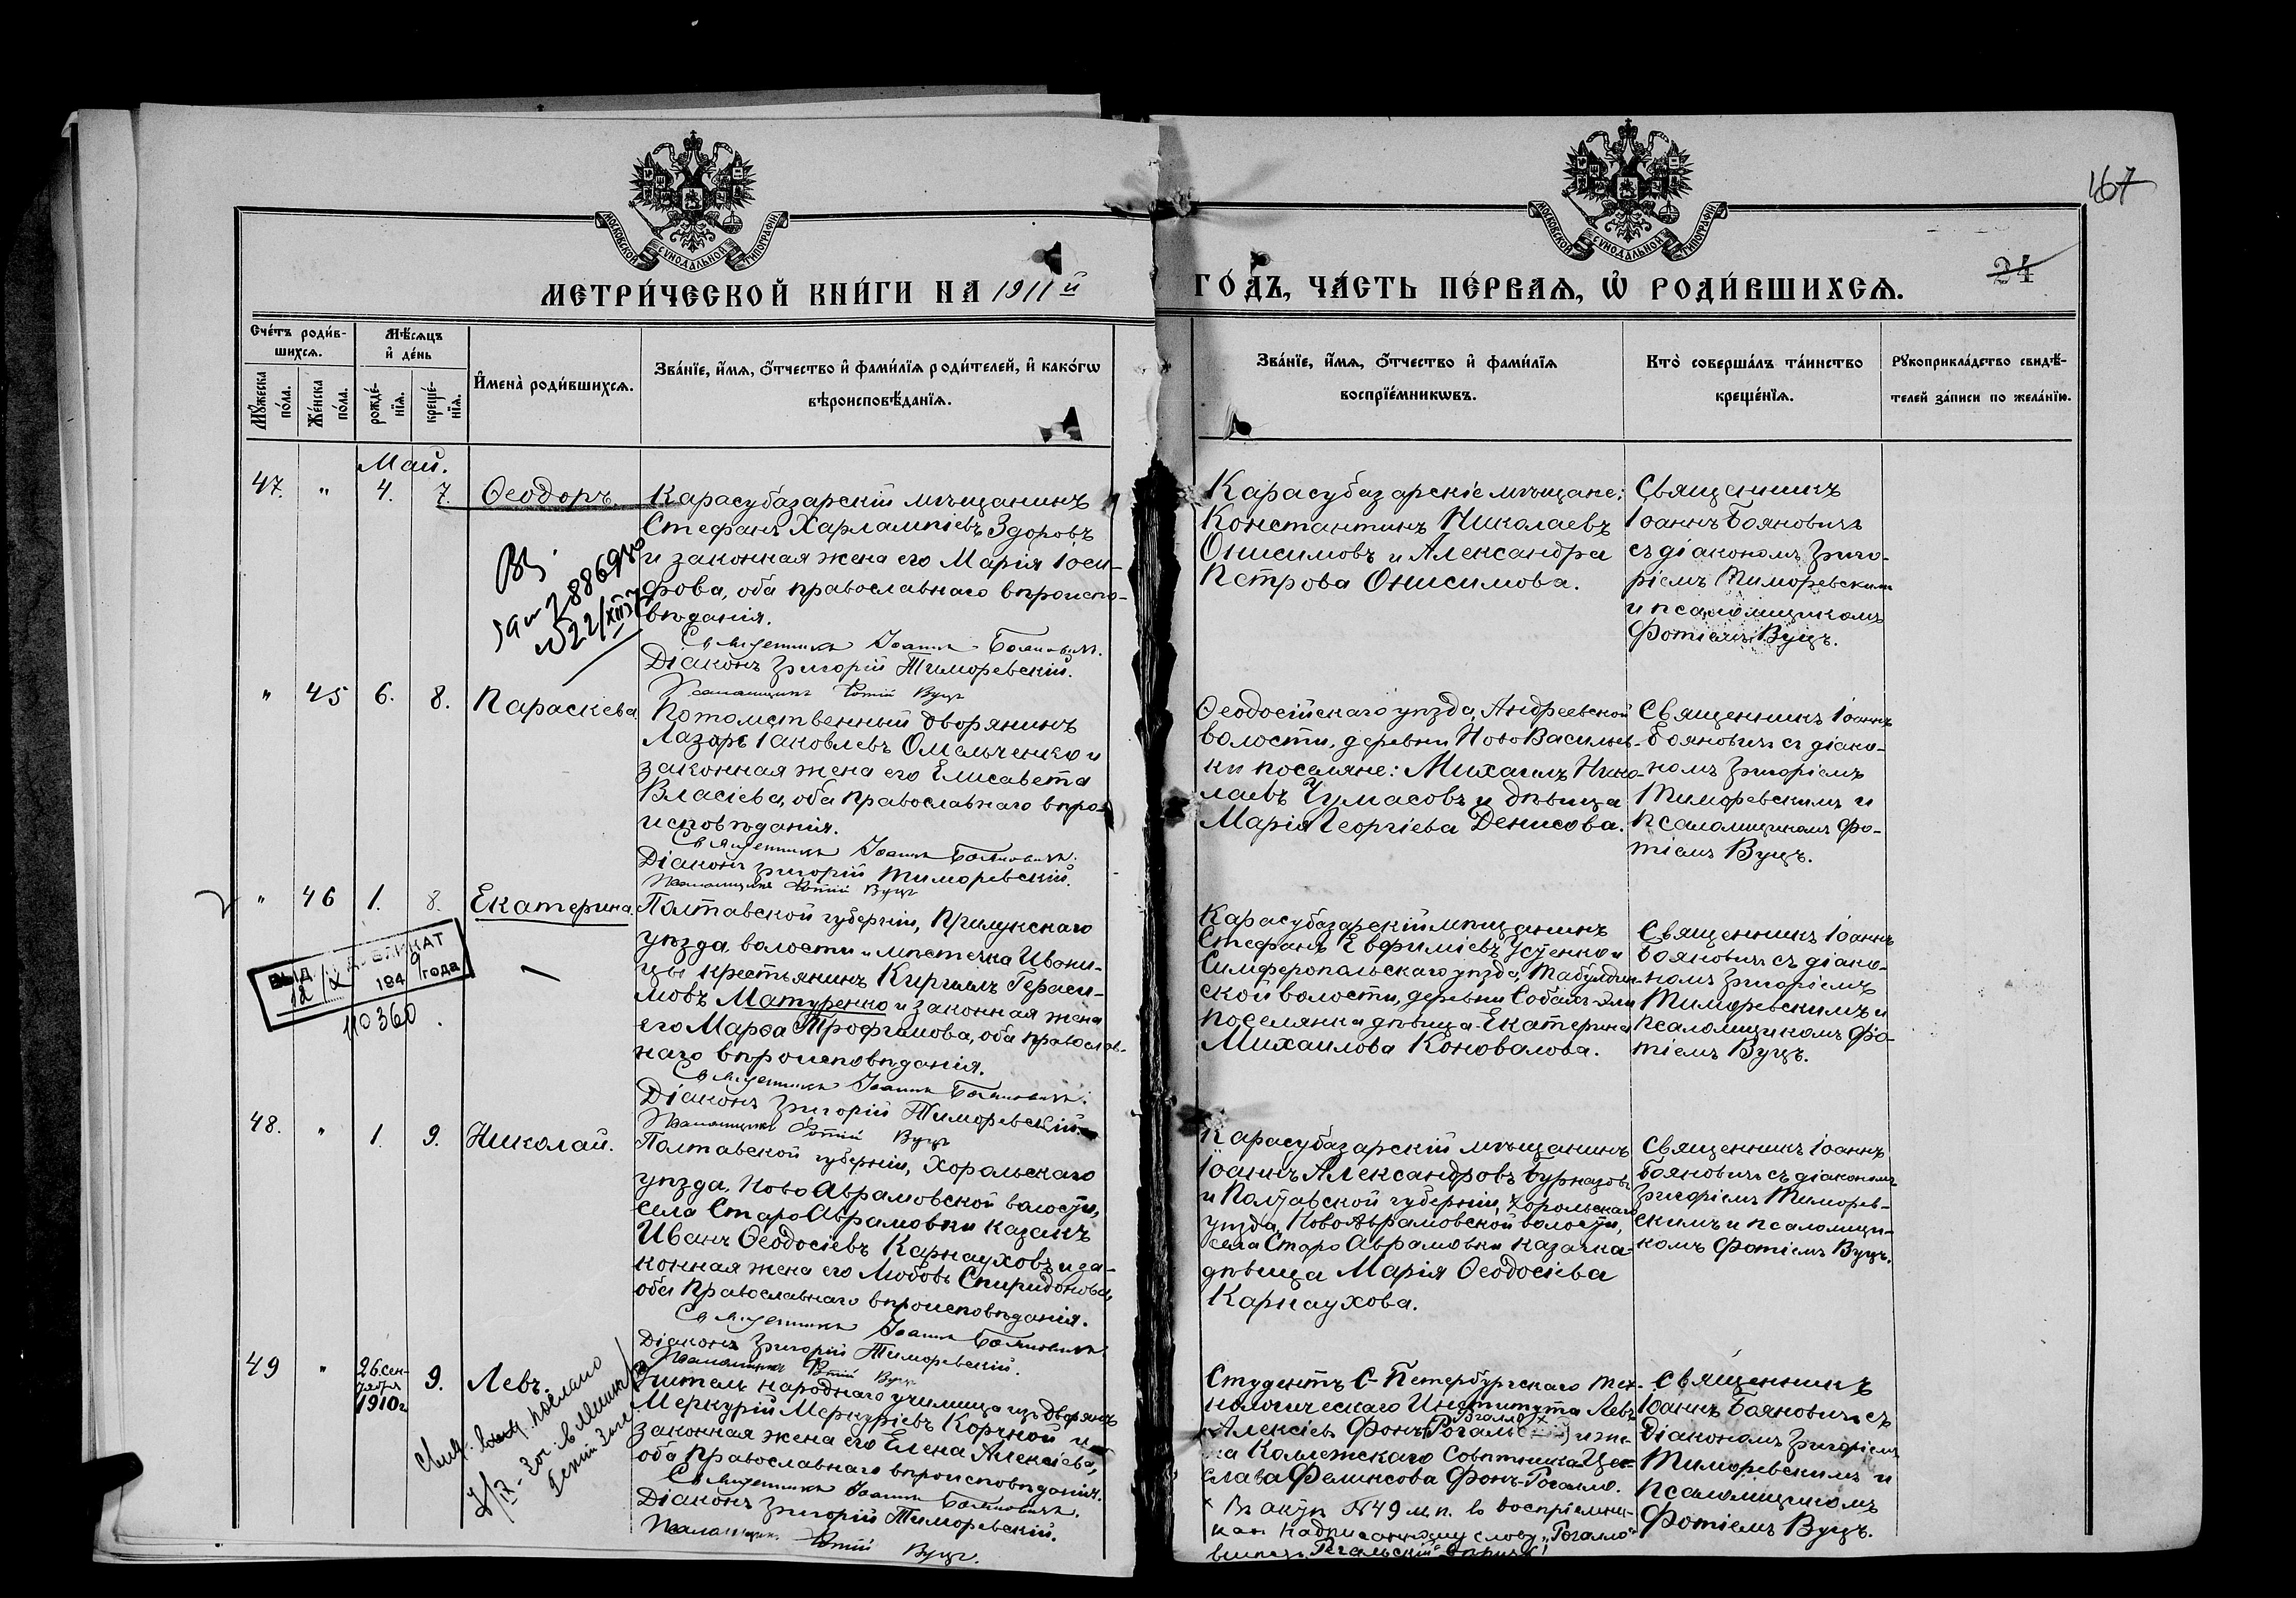 167
МОСКОВСКОЙ СУНОДАЛЬНОЙ ТИПОГРАФІИ
МОСКОВСКОЙ СУНОДАЛЬНОЙ ТИПОГРАФІИ
МЕТРИ́ЧЕСКОЙ КНИ́ГИ НА 1911й
ГО́ДЪ, ЧА́СТЬ ПЕ́РВАѦ, Ѡ РОДИ́ВШИХСѦ.
24
Сче́тъ роди́в-
шихсѧ.
Мѣ́сѧцъ
и҆ де́нь
Мꙋ́жеска
по́ла.
Же́нска
по́ла.
рожде́-
нїѧ.
креще́-
нїѧ.
И҆мена̀ роди́вшихсѧ.
Зва́нїе, и҆́мѧ, ѻ҆́тчество и҆ фами́лїѧ роди́телей, и҆ како́гѡ
вѣроисповѣ́данїѧ.
Зва́нїе, и҆́мѧ, ѻ҆́тчество и҆ фами́лїѧ
воспрїе́мникѡвъ.
Кто̀ соверша́лъ та́инство
креще́нїѧ.
Рꙋкоприкла́дство свидѣ́-
телей за́писи по жела́нїю.
Май.
47. " 4. 7. Ѳеодоръ.
Карасубазарскій мѣщанинъ
Стефанъ Харлампіевъ Здоровъ
и законная жена его Марія Іоси-
фова, оба православнаго вѣроиспо-
вѣданія.
Священникъ Іоаннъ Бояновичъ.
Діаконъ Григорій Тиморевскій.
Псаломщикъ Фотій Вуцъ
Карасубазарскіе мѣщане:
Константинъ Николаевъ
Онисимовъ и Александра
Петрова Онисимова.
Священникъ
Іоаннъ Бояновичъ
съ діакономъ Григо-
ріемъ Тиморевскимъ
и псаломщикомъ
Фотіемъ Вуцъ.
" 45 6. 8. Параскева
Потомственный дворянинъ
Лазарь Іаковлевъ Омельченко и
законная жена его Елисавета
Власіева, оба православнаго вѣро-
исповѣданія.
Священникъ Іоаннъ Бояновичъ.
Діаконъ Григорій Тиморевскій.
Псаломщикъ Фотій Вуцъ
Ѳеодосійскаго уѣзда, Андреевской
волости, деревни НовоВасильев-
ки поселяне: Михаилъ Нико-
лаевъ Чумасовъ и дѣвица
Марія Георгіева Денисова.
Священникъ Іоаннъ
Бояновичъ съ діако-
номъ Григоріемъ
Тиморевскимъ и
псаломщикомъ Фо-
тіемъ Вуцъ.
" 46 1. 8. Екатерина.
Полтавской губерніи, Прилукскаго
уѣзда, волости и мѣстечка Ивани-
цы крестьянинъ Кириллъ Гераси-
мовъ Матуренко и законная жена
его Марѳа Трофимова, оба православ-
наго вѣроисповѣданія.
Священникъ Іоаннъ Бояновичъ.
Діаконъ Григорій Тиморевскій.
Псаломщикъ Фотій Вуцъ
ВЫД ДУБЛИКАТ
12/X 1949 года
110360.
Карасубазарскій мѣщанинъ
Стефанъ Евфиміевъ Усенко и
Симферопольскаго уѣзда, Табулдин-
ской волости, деревни Собакъ-эли
поселянка дѣвица Екатерина
Михаилова Коновалова.
Священникъ Іоаннъ
Бояновичъ съ діако-
номъ Григоріемъ
Тиморевскимъ и
псаломщикомъ Фо-
тіемъ Вуцъ.
48. " 1. 9. Николай.
Полтавской губерніи, Хорольскаго
уѣзда, НовоАврамовской волости,
села СтароАврамовки казакъ
Иванъ Ѳеодосіевъ Карнауховъ и за-
конная жена его Любовь Спиридонова,
оба православнаго вѣроисповѣданія.
Священникъ Іоаннъ Бояновичъ.
Діаконъ Григорій Тиморевскій.
Псаломщикъ Фотій Вуцъ
Карасубазарскій мѣщанинъ
Іоаннъ Александровъ Бурназовъ
и Полтавской губерніи, Хорольскаго
уѣзда, НовоАврамовской волости,
села СтароАврамовки казачка
дѣвица Марія Ѳеодосіева
Карнаухова.
Священникъ Іоаннъ
Бояновичъ съ діакономъ
Григоріемъ Тиморев-
скимъ и псаломщи-
комъ Фотіемъ Вуцъ.
49 " 26 сен-
тября
1910 г. 9. Левъ.
Учитель народнаго училища изъ дворянъ
Меркурій Меркуріевъ Корчной и
законная жена его Елена Алексіева,
оба православнаго вѣроисповѣданія.
Священникъ Іоаннъ Бояновичъ.
Діаконъ Григорій Тиморевскій.
Псаломщикъ Фотій Вуцъ.
Студентъ С-Петербургскаго Тех-
нологическаго Института Левъ
Алексіевъ Фонъ Рогалло и же-
на Коллежскаго Совѣтника Цес-
лава Феликсова Фонъ-Рогалло.
Священникъ
Іоаннъ Бояновичъ съ
діакономъ Григоріемъ
Тиморевскимъ и
псаломщикомъ
Фотіемъ Вуцъ.